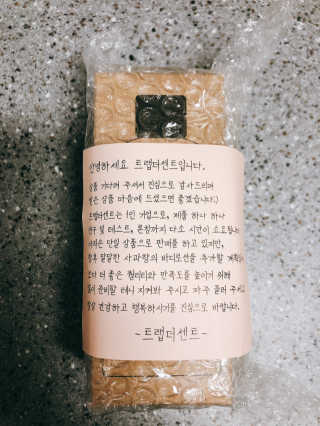 안녕하세요 트랩더센트입니다.
상품 기다려 주셔서 진심으로 감사드리며
받은 상품 마음에 드셨으면 좋겠습니다:)
트랩더센트는 1인 기업으로, 제품 하나 하나
연구 및 테스트, 론칭까지 다소 시간이 소요됩니다
단일 상품으로 판매를 하고 있지만,
향후 달달한 사과향의 바디로션을 추가할 계획
보다 더 좋은 퀄리티와 만족도를 높이기 위해
준비할 테니 지켜봐 주시고 자주 들러 주시고
항상 건강하고 행복하시기를 진심으로 바랍니다.
- 트랩더센트 -